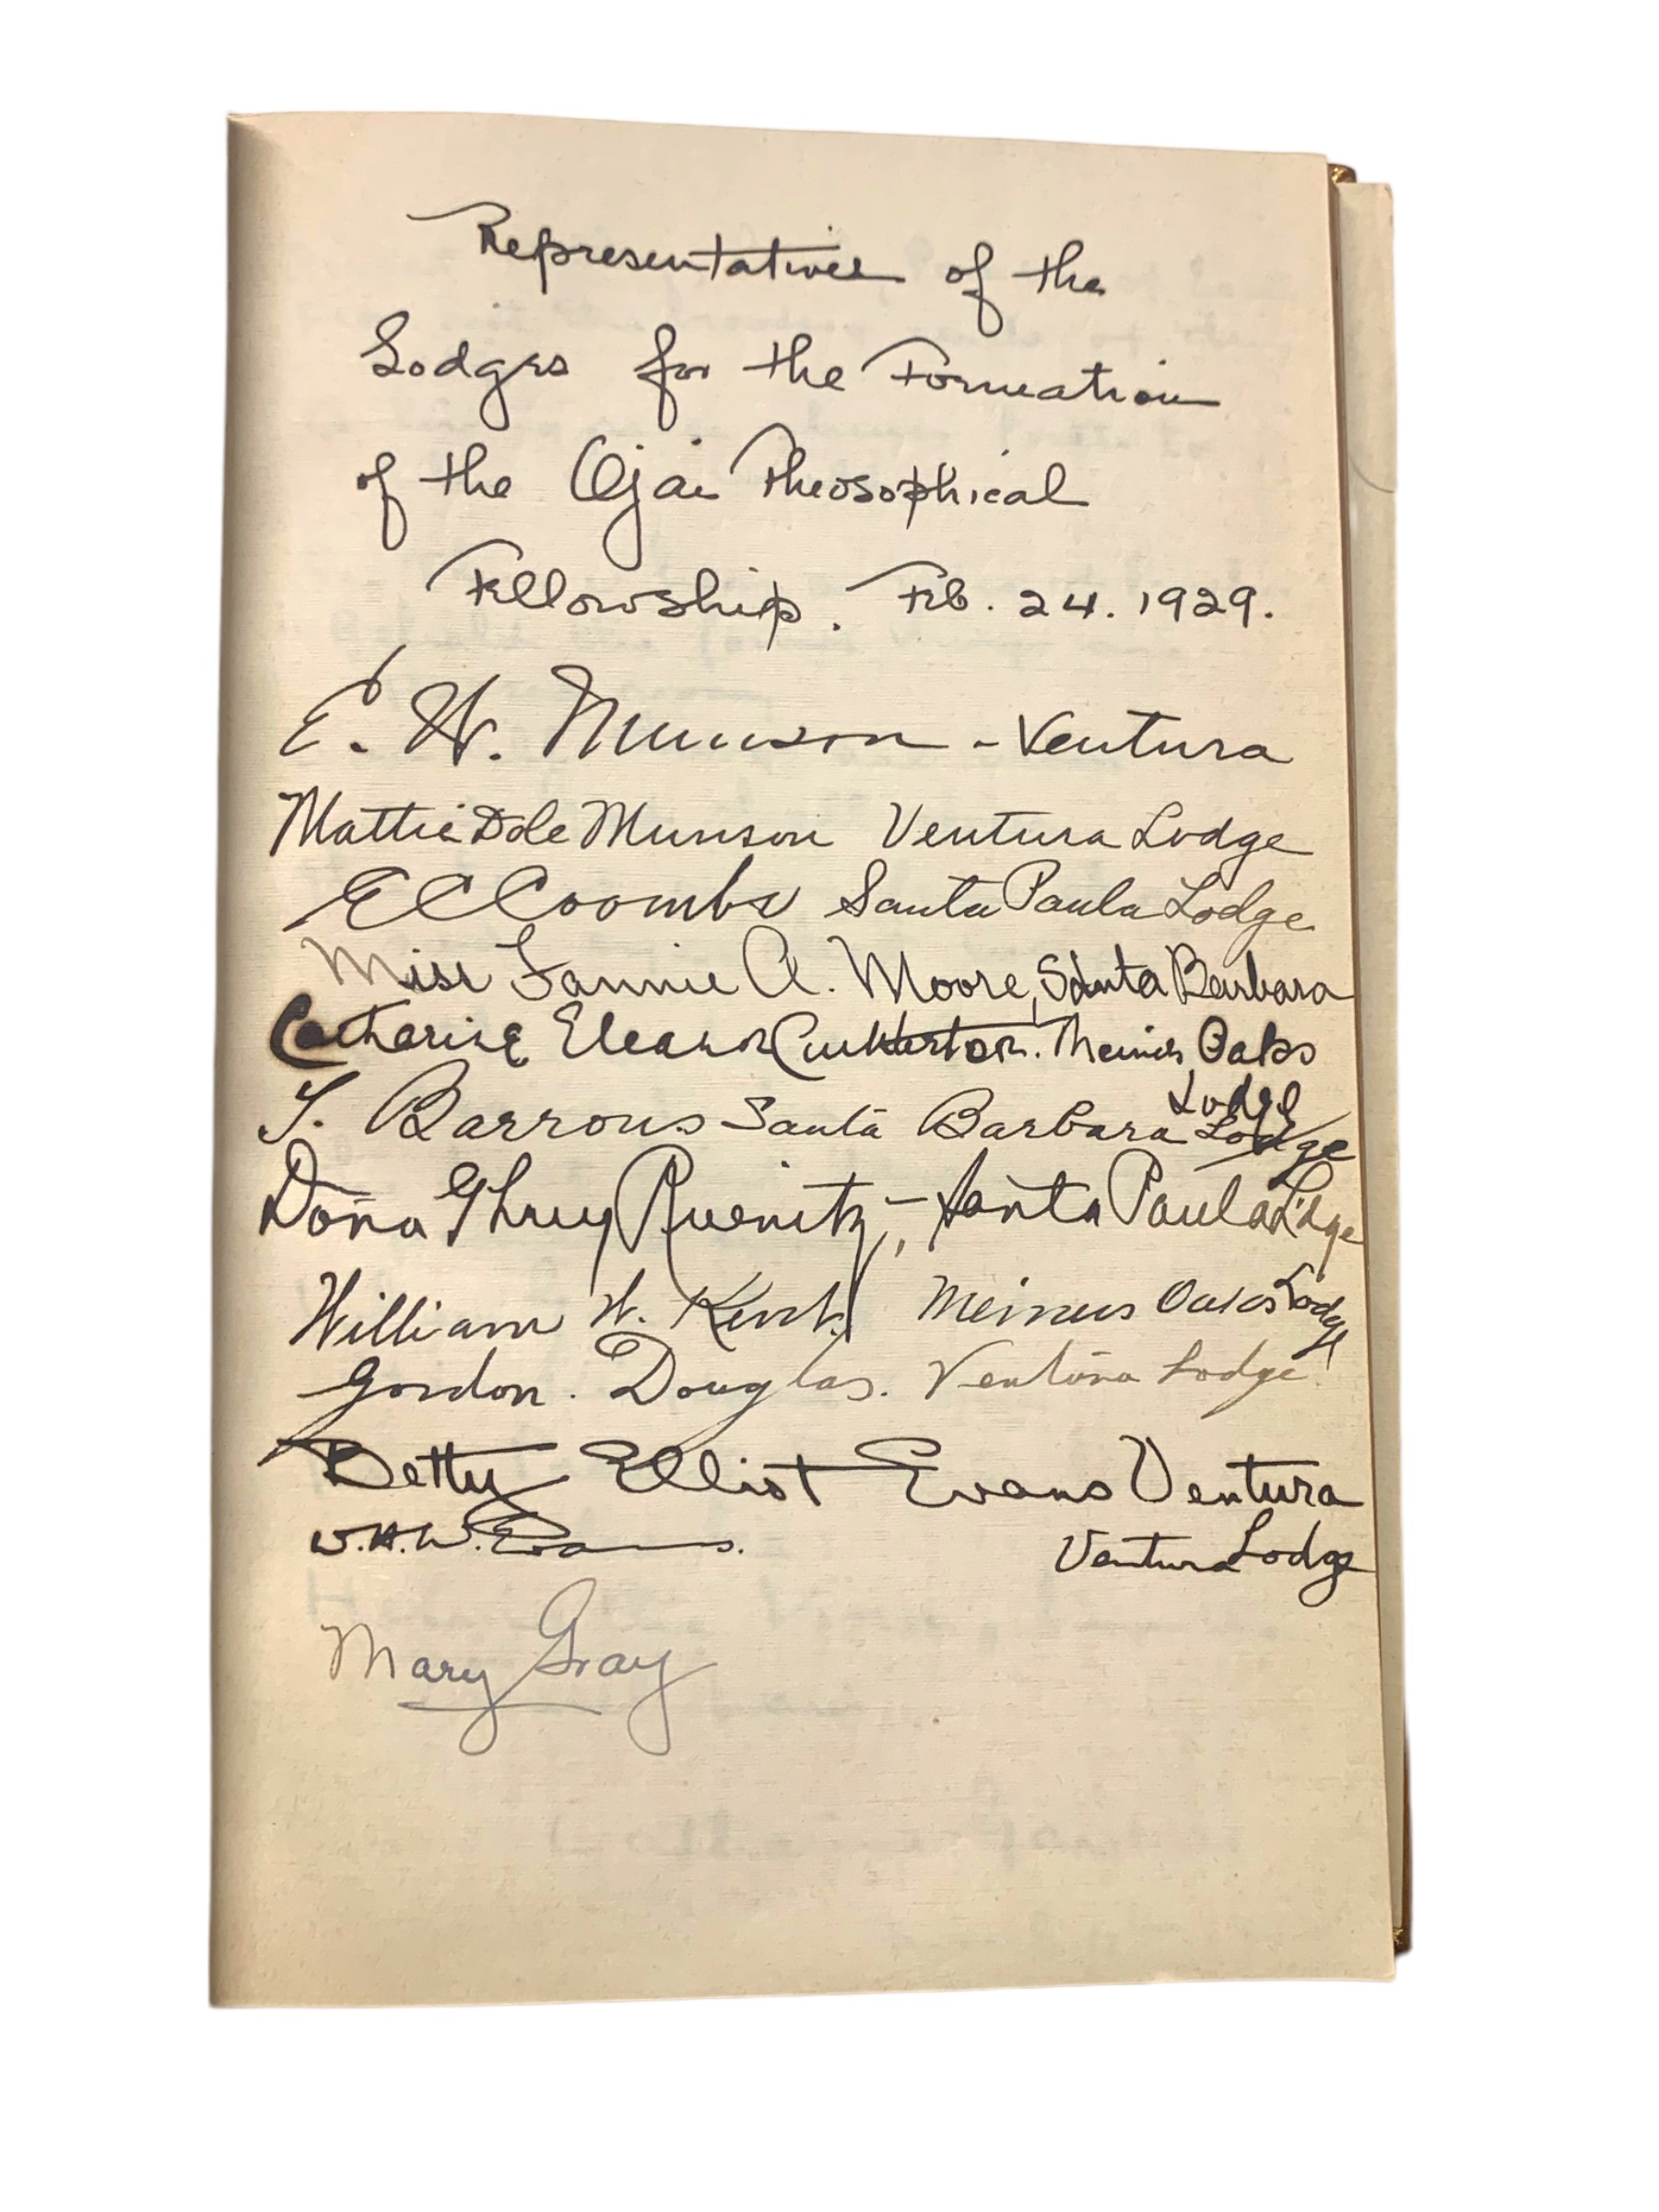 Representatives of the
Lodges for the Formation
of the Ojai Theosophical
Fellowship. Feb. 24. 1929.
E. W. Munson - Ventura
Mattie Dole Munson Ventura Lodge
E C Coombs Santa Paula Lodge
Miss Fannie A. Moore, Santa Barbara
Catharine Eleanor Meiners Oaks
Lodge
T. Barrows Santa Barbara Lodge
Doña - Santa Paula Lodge
William W. Meiners Oaks Lodge
Gordon. Douglas. Ventura Lodge
Betty Elliot Evans Ventura
W.H.W. Evans. Ventura Lodge
Mary Gray